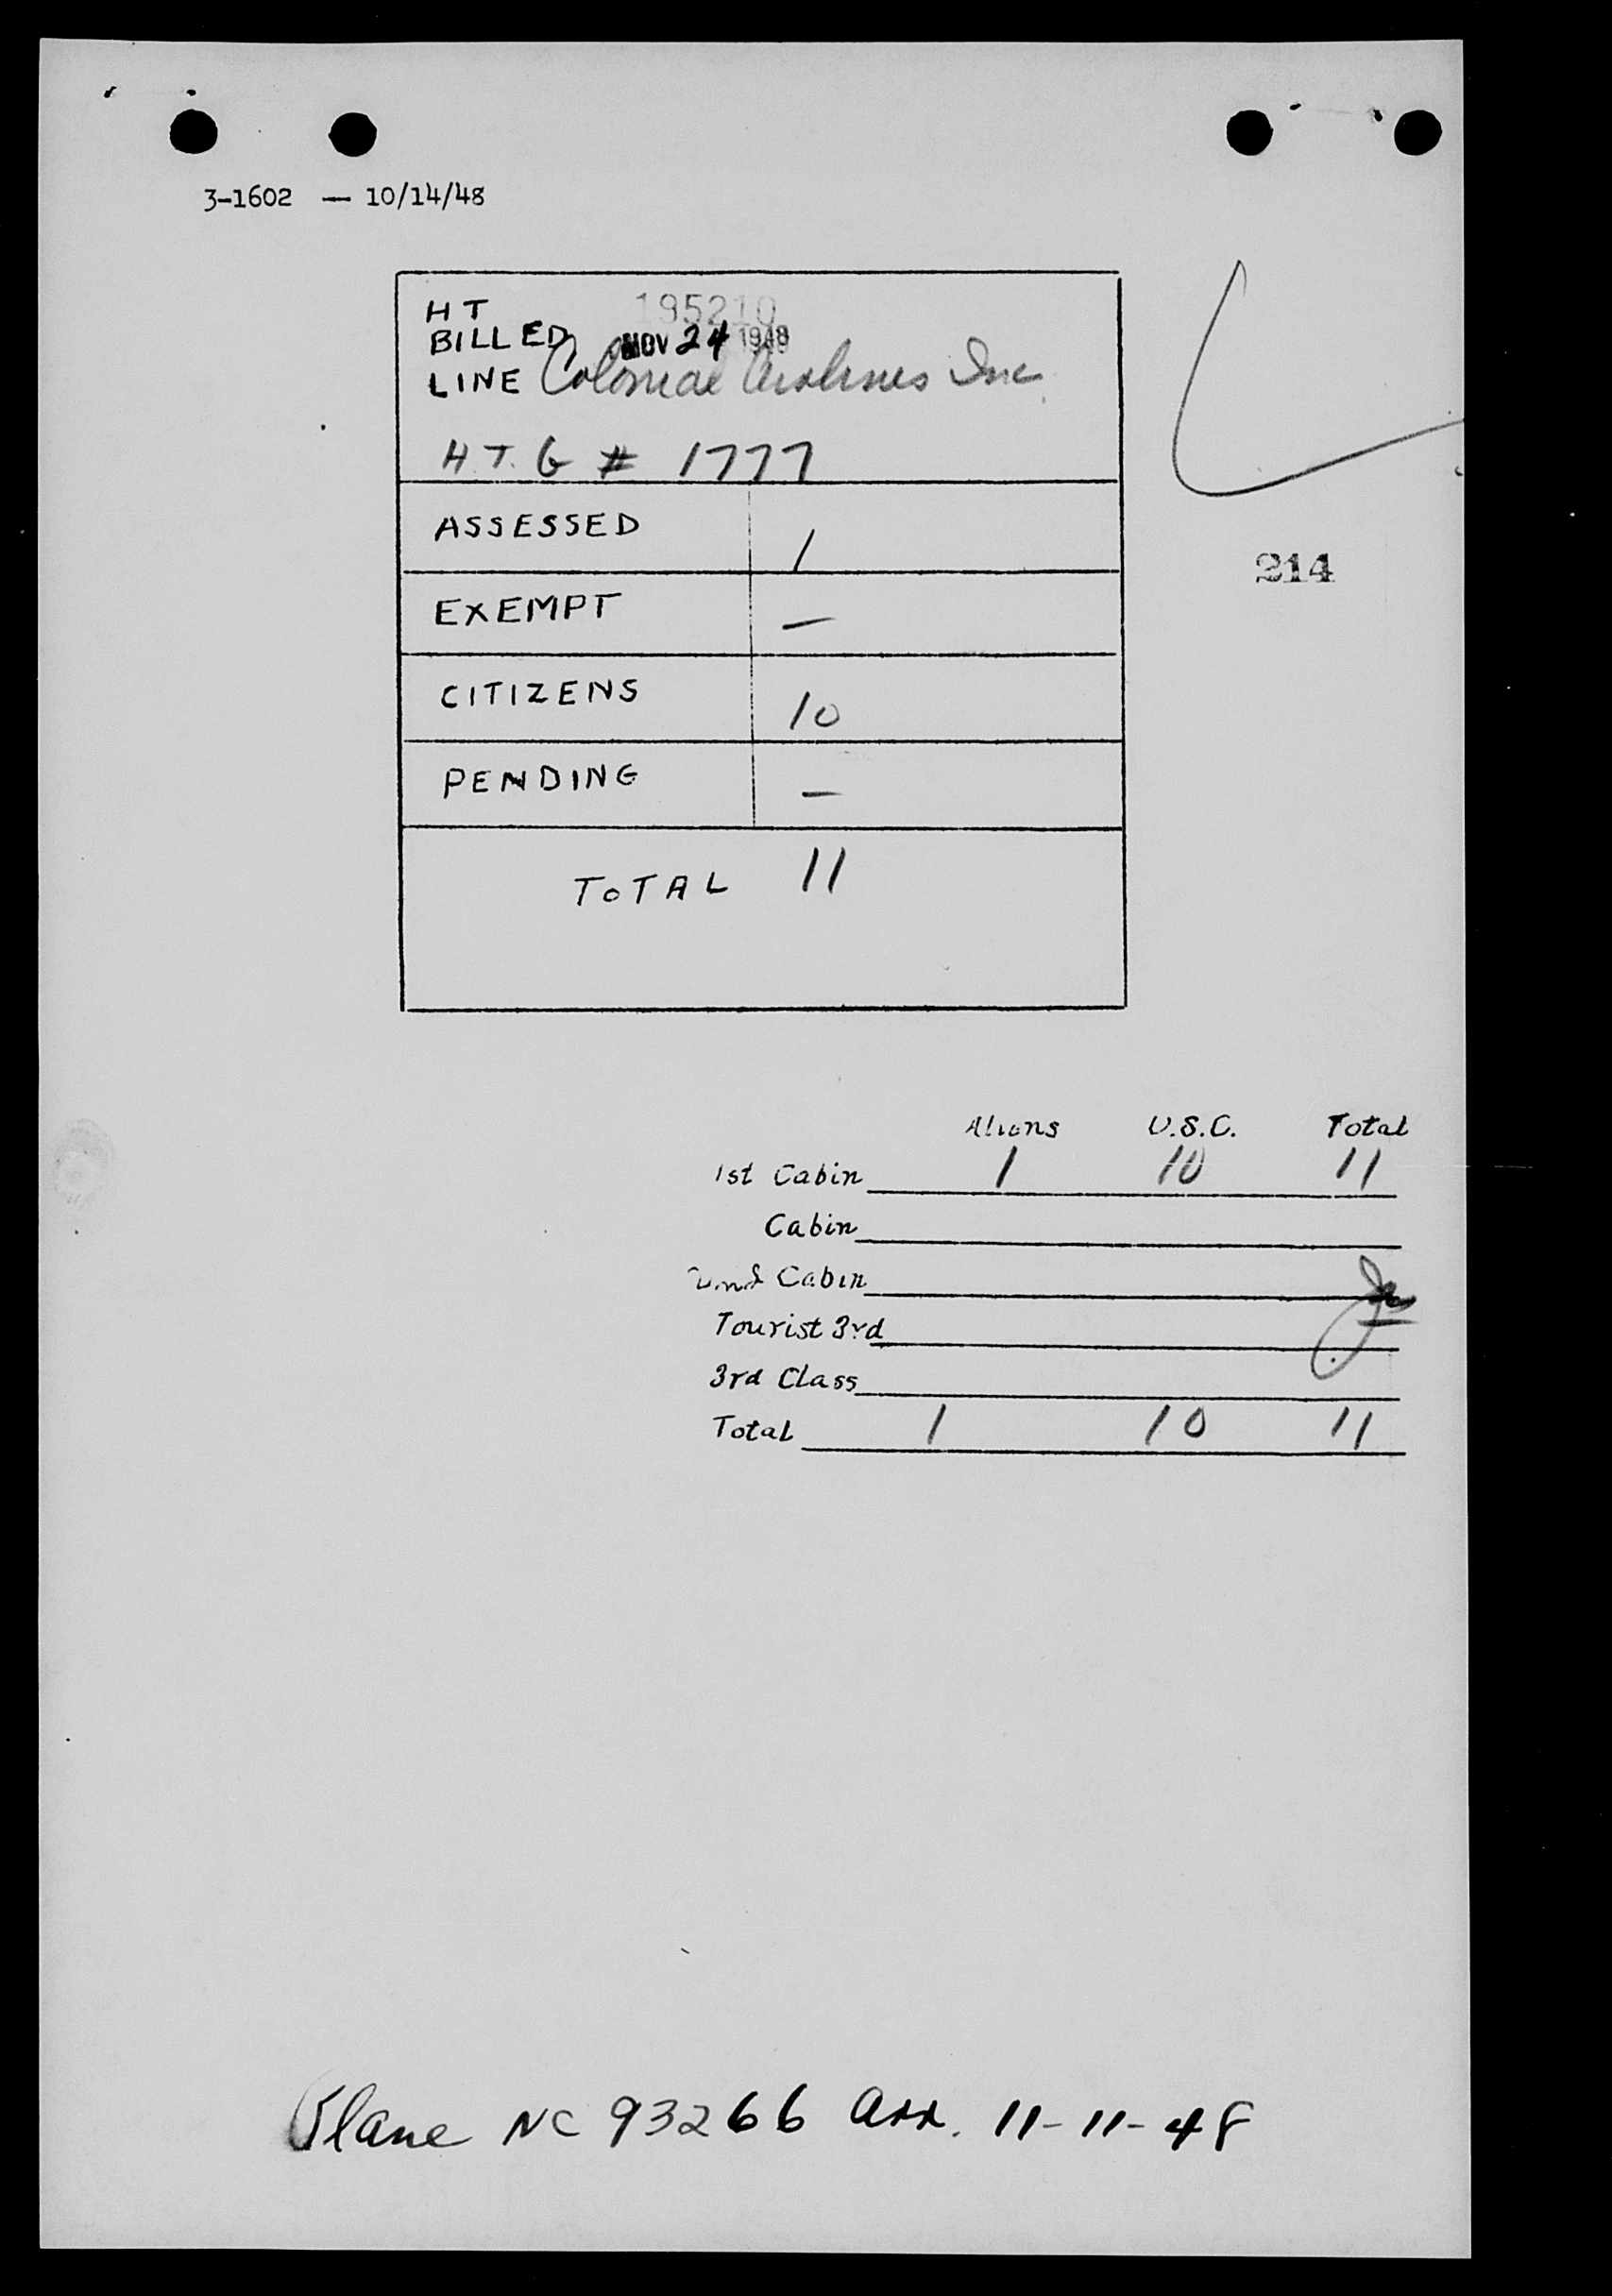 3-1602 — 10/14/48
HT 195210
BILLED NOV 24 1948
LINE Colonial Airlines Inc.
H.T. G # 1777
ASSESSED 1
214
EXEMPT —
CITIZENS 10
PENDING —
TOTAL 11
Aliens U.S.C. Total
1st Cabin 1 10 11
Cabin
2nd Cabin
Tourist 3rd
3rd Class
Total 1 10 11
Plane NC 93266 arr. 11-11-48